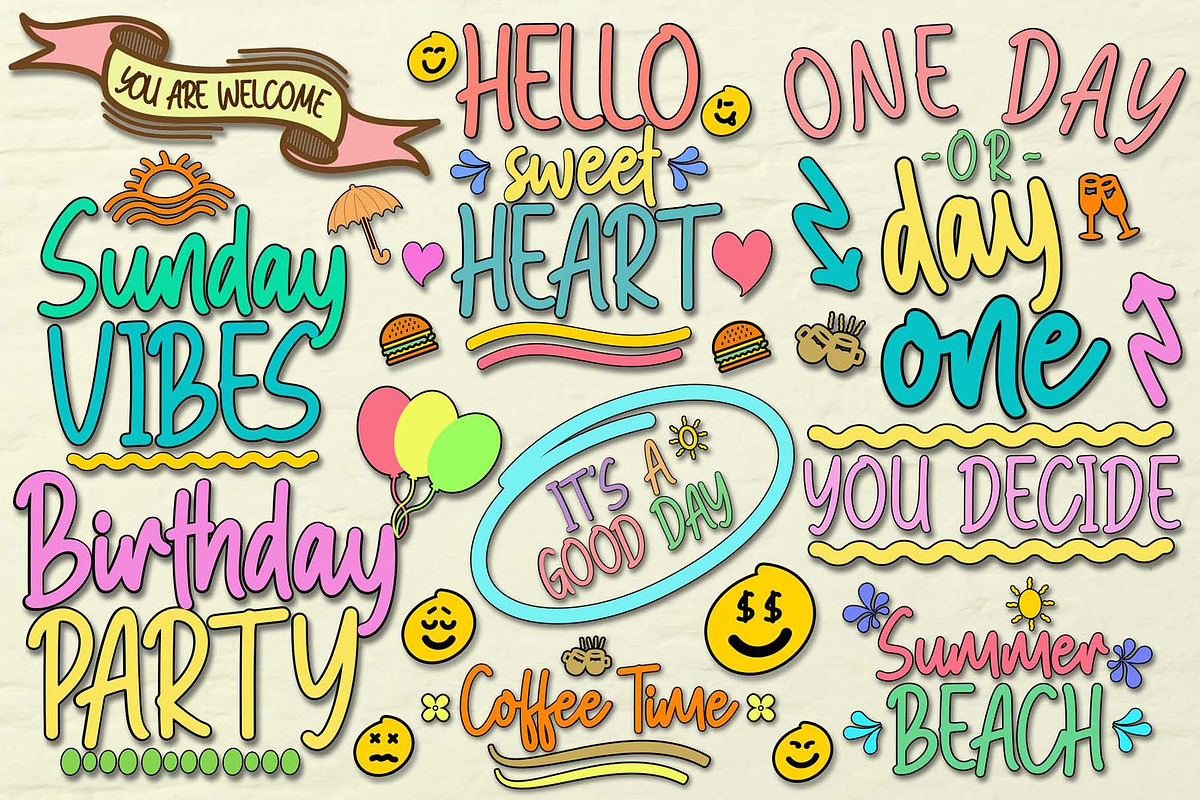 YOU ARE WELCOME
HELLO
sweet
HEART
ONE DAY
-OR-
day
one
YOU DECIDE
Sunday
VIBES
Birthday
PARTY
IT'S A
GOOD DAY
$ $
Coffee Time
Summer
BEACH